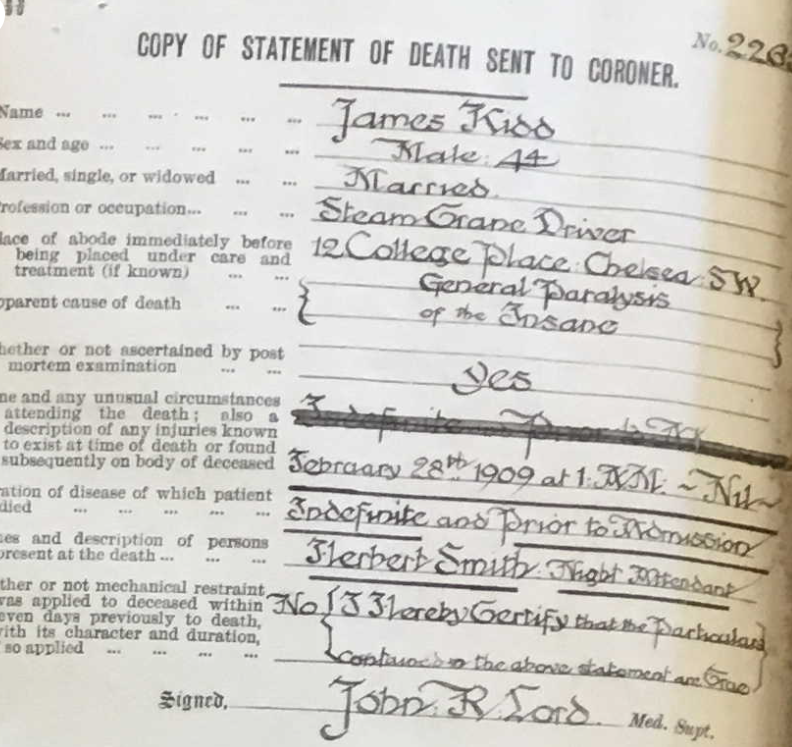 No. 226
COPY OF STATEMENT OF DEATH SENT TO CORONER.
Name ... ... ... ... ... ... James Kidd
Sex and age ... ... ... ... ... Male: 44
Married, single, or widowed ... ... Married.
rofession or occupation... ... ... Steam Crane Driver
lace of abode immediately before
being placed under care and 12 College Place: Chelsea: SW.
treatment (if known) ... ...
General Paralysis
pparent cause of death ... ... of the Insane
hether or not ascertained by post
mortem examination ... ... Yes
me and any unusual circumstances
attending the death; also a Indefinite Prior to
description of any injuries known
to exist at time of death or found
subsequently on body of deceased February 28th 1909 at 1. AM. ~ Nil ~
ration of disease of which patient
died ... ... ... ... ... Indefinite and Prior to Admission
es and description of persons
present at the death ... ... ... Herbert Smith: Night Attendant
ther or not mechanical restraint
was applied to deceased within No I Hereby Certify that the Particulars
even days previously to death,
with its character and duration,
so applied ... ... ... ... contained in the above statement are True
Signed, John. R. Lord. Med. Supt.